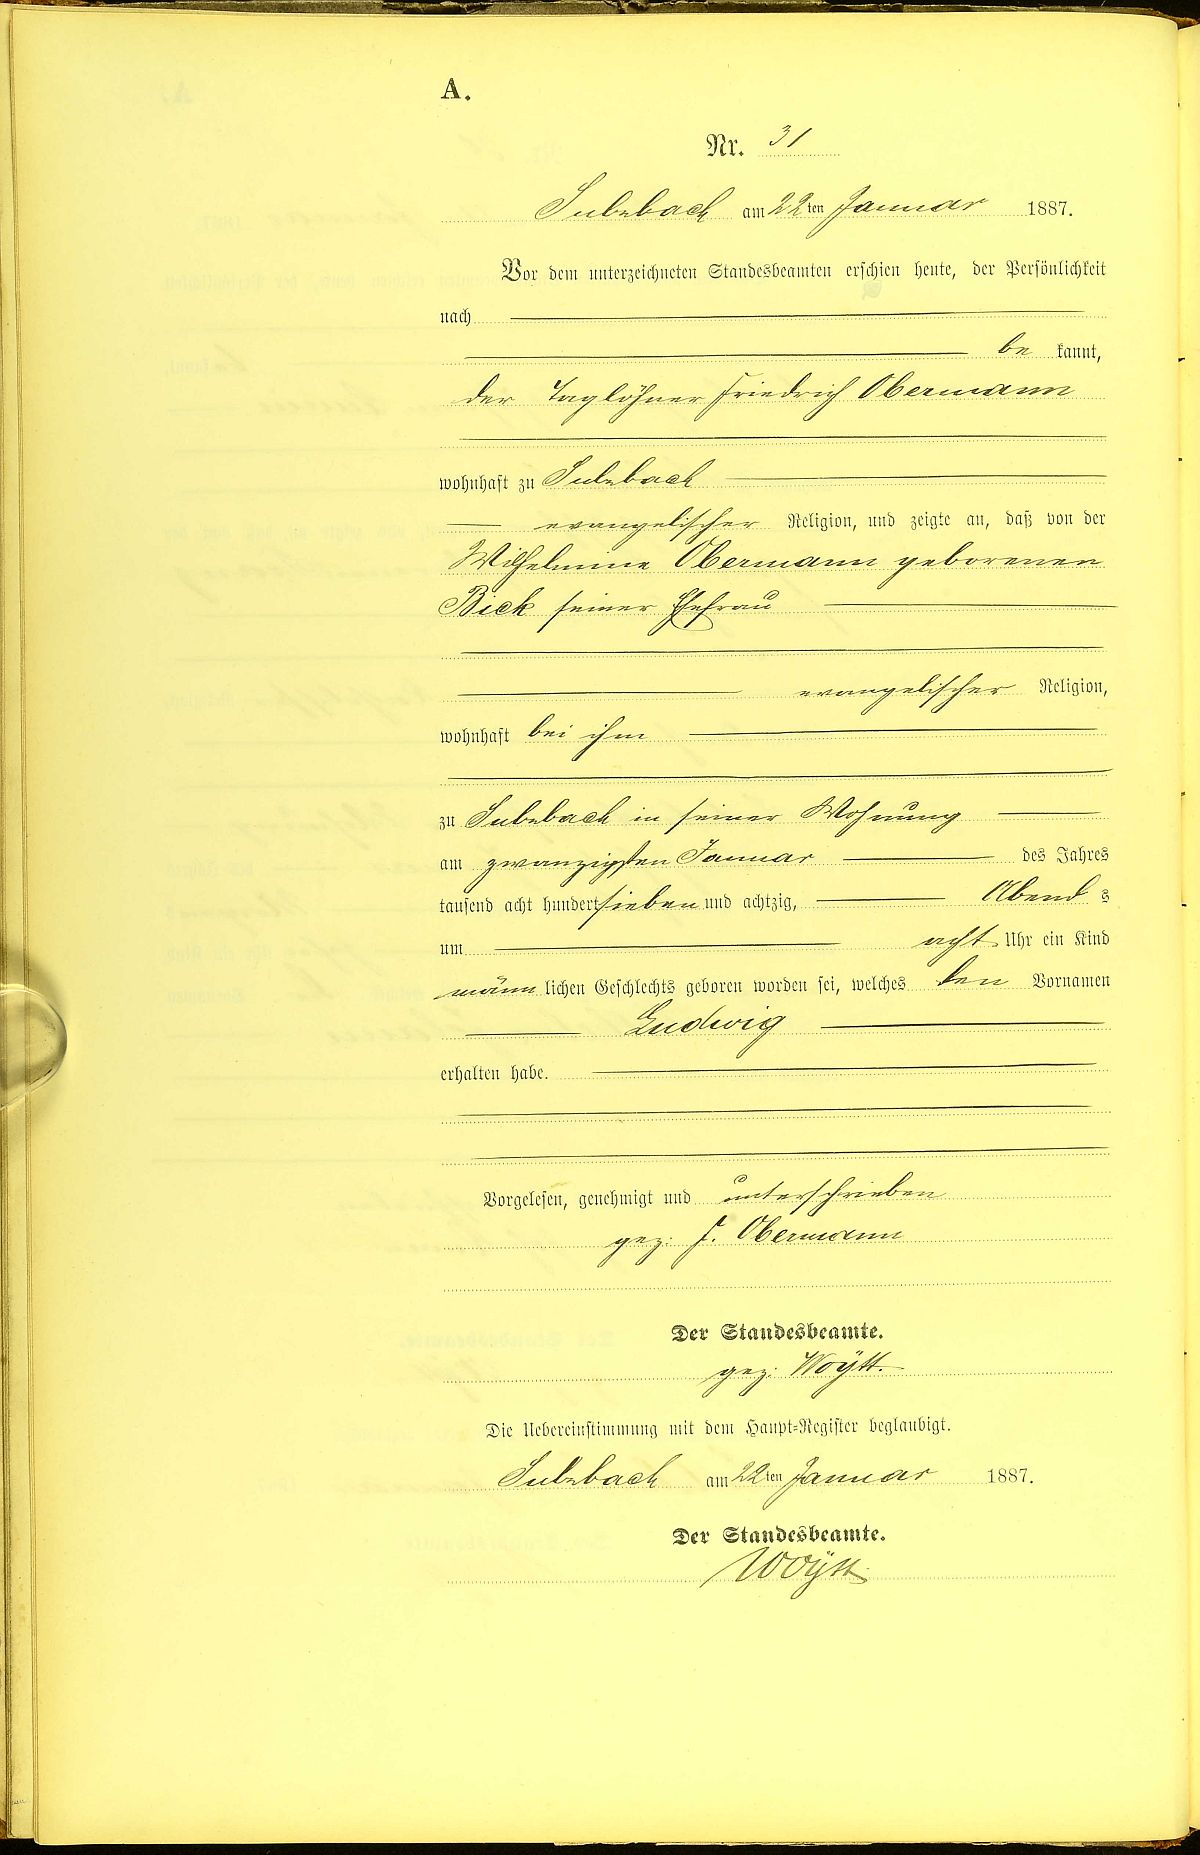 A.
Nr. 31
Sulzbach am 22ten Januar 1887.
Vor dem unterzeichneten Standesbeamten erschien heute, der Persönlichkeit
nach
be kannt,
der Taglöhner Friedrich Obermann
wohnhaft zu Sulzbach
evangelischer Religion, und zeigte an, daß von der
Wilhelmine Obermann geborenen
Bick seiner Ehefrau
evangelischer Religion,
wohnhaft bei ihm
zu Sulzbach in seiner Wohnung
am zwanzigsten Januar des Jahres
tausend acht hundert sieben und achtzig, Abend s
um acht Uhr ein Kind
männ lichen Geschlechts geboren worden sei, welches den Vornamen
Ludwig
erhalten habe.
Vorgelesen, genehmigt und unterschrieben
gez. F. Obermann
Der Standesbeamte.
gez. Woÿtt.
Die Uebereinstimmung mit dem Haupt-Register beglaubigt.
Sulzbach am 22ten Januar 1887.
Der Standesbeamte.
Woÿtt